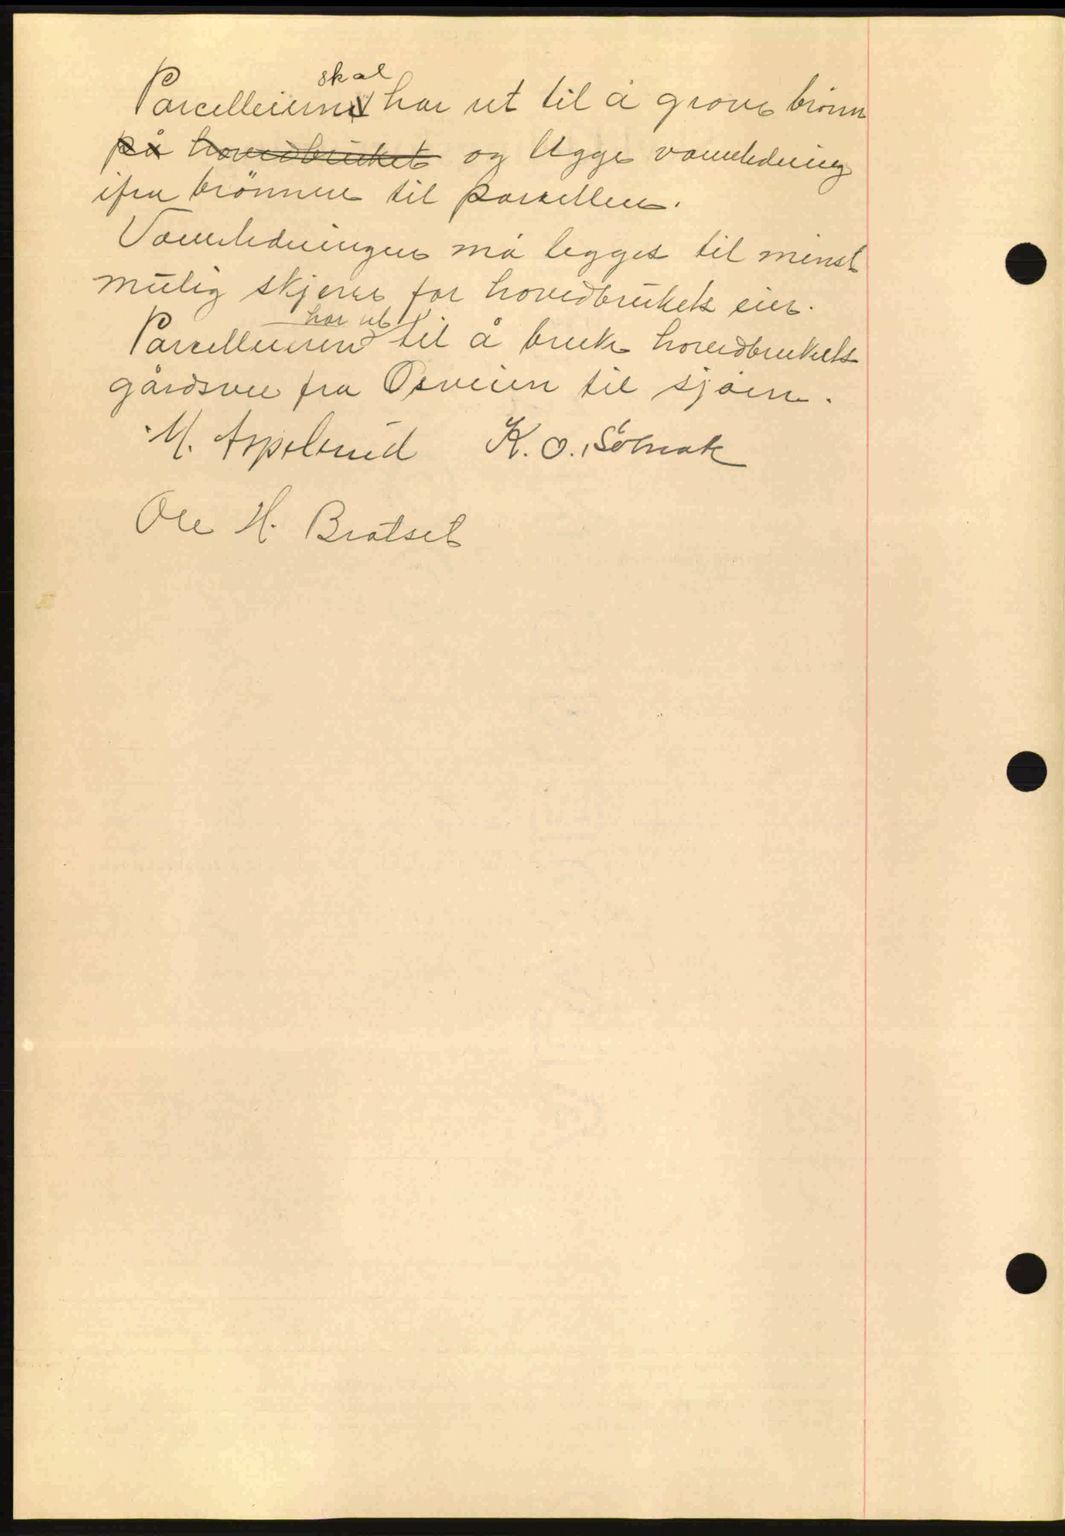 skal
Parcelleieren har ret til å grave brönn
på hovedbruket og legge vannledning
ifra brönnen til parsellen.
Vannledningen må legges til minst
mulig skjener for hovedbrukets eier.
har ret
Parcelleieren til å bruke hovedbrukets
gårdsvei fra Osveien til sjöen.
M. Aspelund K. O. Solbak
Ole H. Bratset